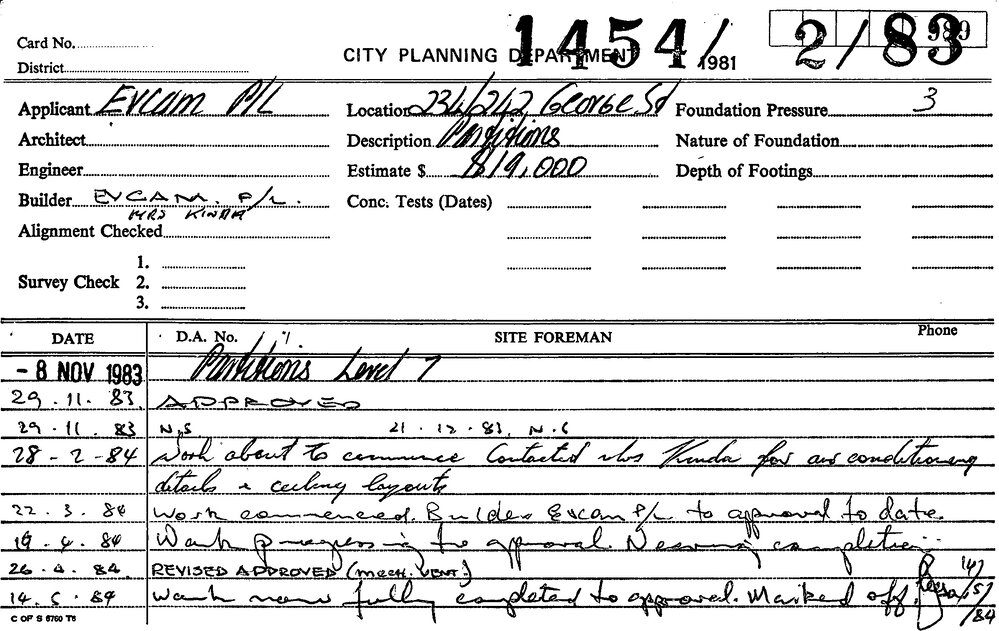 Card No. 1454/ 2/83 989
CITY PLANNING DEPARTMENT 1981
District
Applicant Evcam P/L Location 234/242 George St Foundation Pressure 3
Architect Description Partitions Nature of Foundation
Engineer Estimate $ $19,000 Depth of Footings
Builder EVCAM. P/L. Conc. Tests (Dates)
MRS KINDA
Alignment Checked
1.
Survey Check 2.
3.
DATE D.A. No. SITE FOREMAN Phone
- 8 NOV 1983 Partitions Level 7
29.11.83. APPROVED
29.11.83 N.S. 21.12.83. N.S
28-2-84 Work about to commence Contacted Mrs Kinda for air conditioning
details & ceiling layouts
22.3.84 Work commenced. Builder Evcam P/L to approval to date.
19.4.84 Work progressing to approval. Nearing completion.
26.4.84. REVISED APPROVED (MECH. VENT.)
14.5.84 Work now fully completed to approval. Marked off. 14/5/84
C OF S 6760 T6